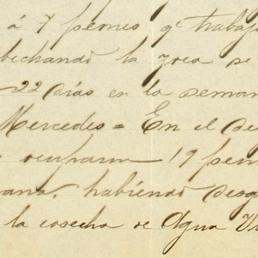 á 7 peones qe trabaj
bechando la
22 dias en la seman
Mercedes = En el
ocuparon 19 peon
habiendo
la cosecha de Agua